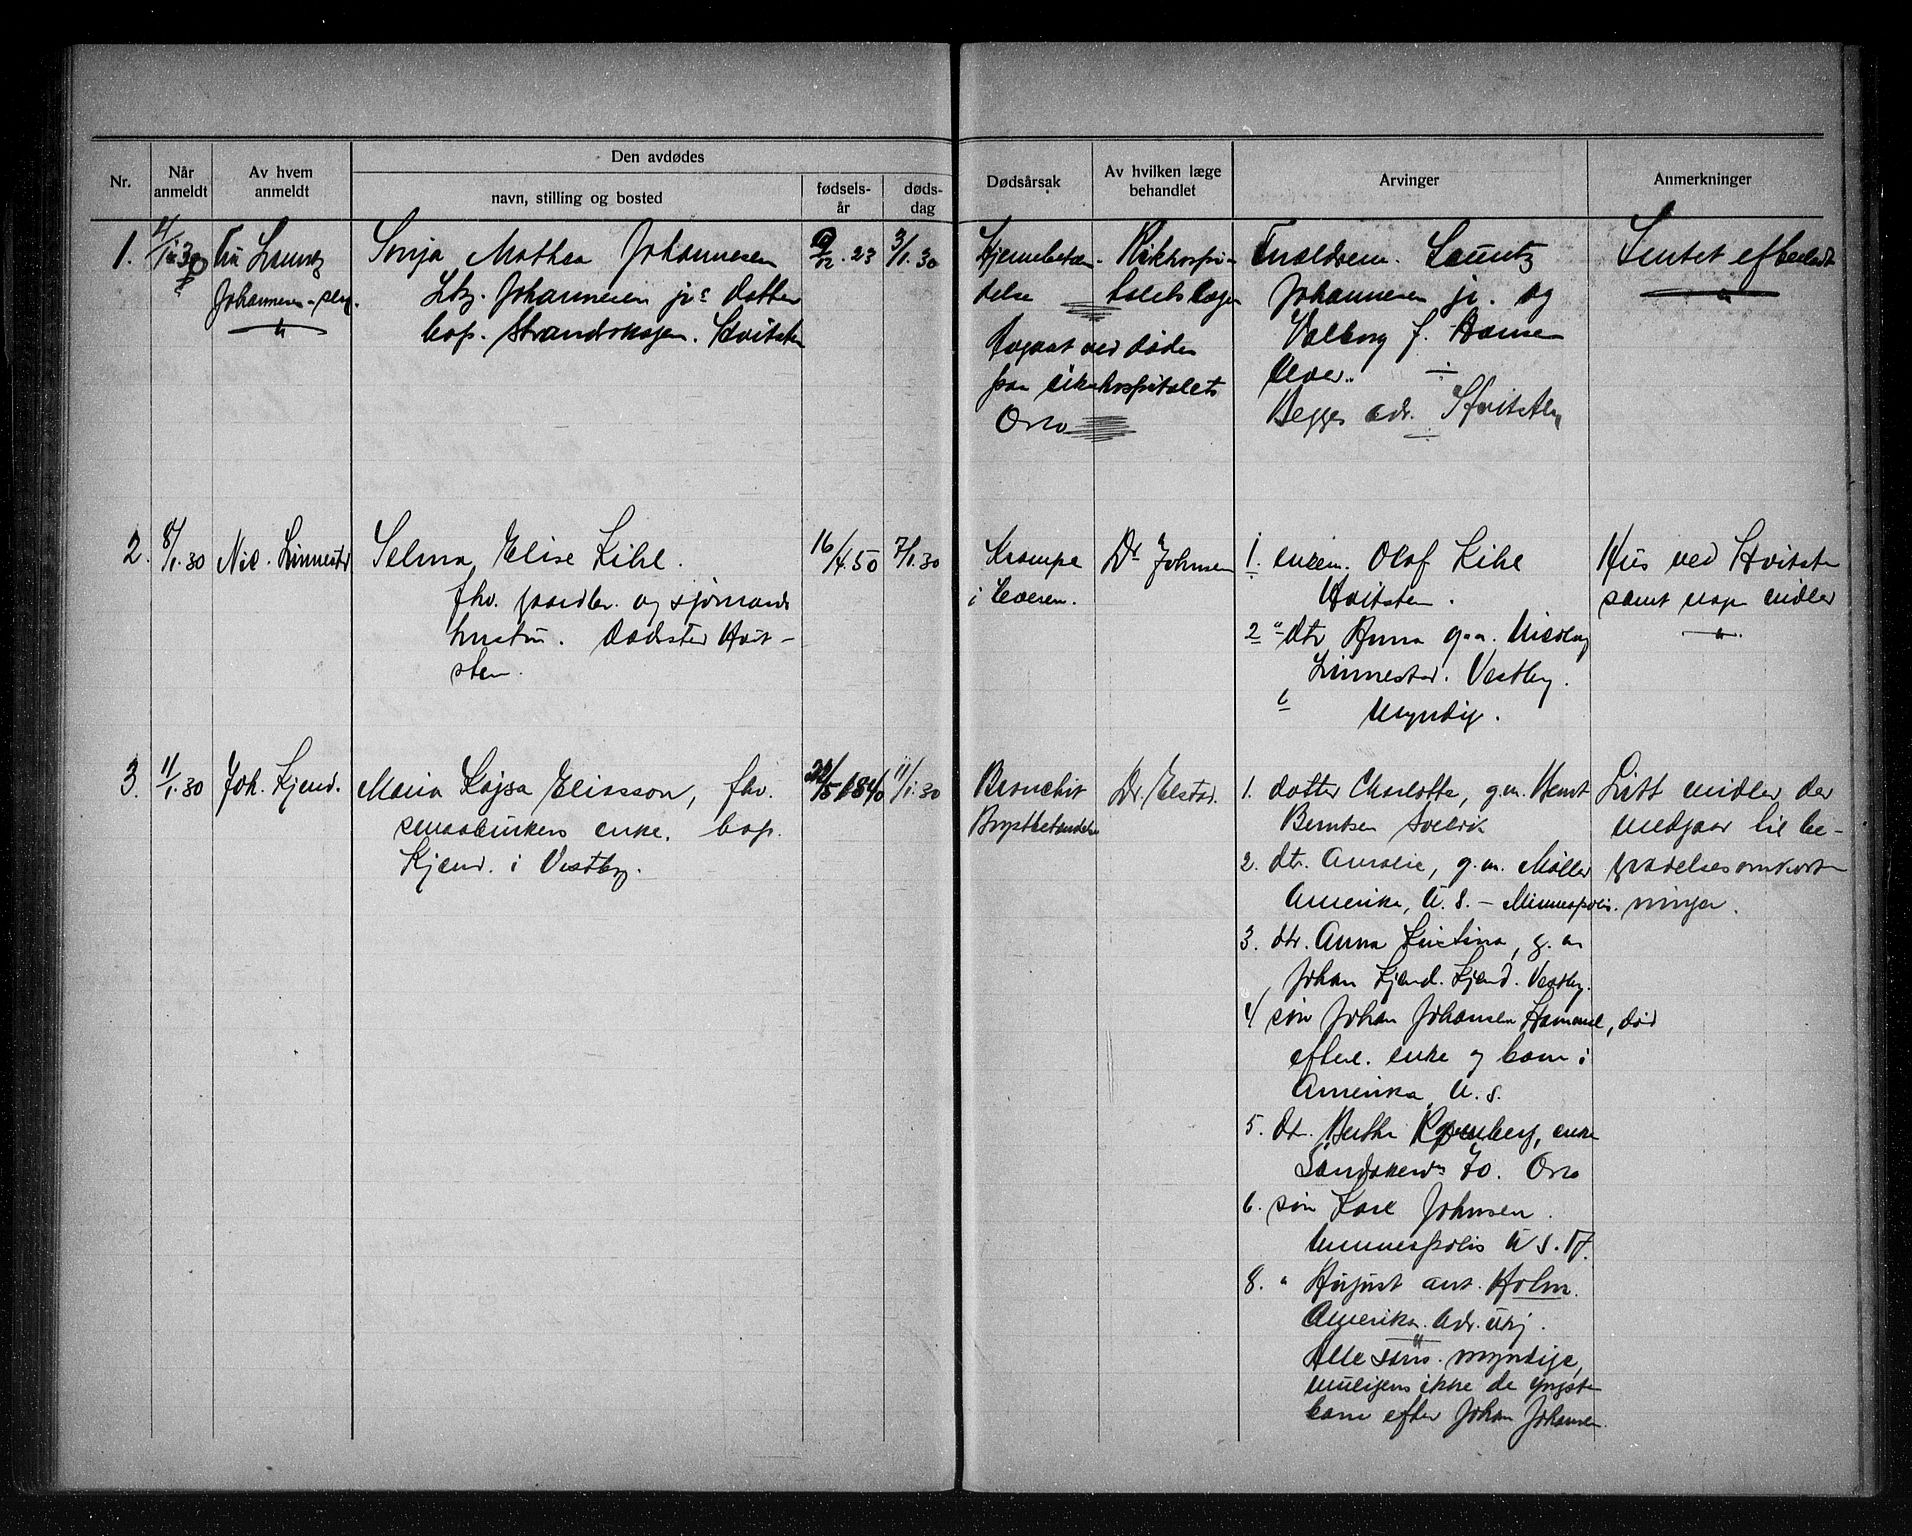 Nr.
Når anmeldt
Av hvem anmeldt
Den avdødes
navn, stilling og bosted
fødsels-år
døds-dag
Dødsårsak
Av hvilken læge behandlet
Arvinger
Anmerkninger
1.
Johannesen
Sonja Mathea Johannesen
Johannesen jr⁵ datter
bop. Hvitsten
23
3/1.30
Hjernebetæn-
delse
Rikshospi-
talets læger
Avgaat ved døden
paa rikshospitalets
Oslo
Forældrene. Lauritz
Johannesen jr. og
Valborg f. Hansen
Begges adr. Hvitsten
Intet efterladt
2.
8/1.30
Nic. Linnestad
Selma Elise Kihl.
fhv. gaardbr. og sjømands
hustru. Dødssted Hvit-
sten.
16/4.50
7/1.30
Krampe
i
Dr Johnsen
1. enkem. Olaf Kihl
Hvitsten.
2 dtr Anna g.m. Nicolay
Linnestad. Vestby.
Myndig.
Hus ved Hvitsten
samt nogen midler
3.
11/1.30
Joh. Kjend.
Maria Kajsa Eliasson, fhv.
smaabrukers enke. bop.
Kjend. i Vestby.
/5 1840
11/1.30
Bronchit
Brystbetændelse
Dr. Elstad.
1. datter Charlotte, g.m. Bernt
Berntsen Svelvik
2. dtr. Amalie, g.m. Møller
Amerika, U. S. – Minneapolis.
3. dtr. Anna Kristina, g. m
Johan Kjend. Kjend. Vestby.
4 søn Johan Johansen, død
efterl. enke og barn i
Amerika U. S.
5. dt. Berthe enke
70. Oslo
6. søn Karl Johnsen.
Minneapolis U S.
8. " August ant. Holm.
Amerika. Adr. ubk.
Alle myndige,
muligens ikke de yngste
barn efter Johan Johansen.
Litt midler der
medgaar til be-
gravelsesomkost-
ninger.